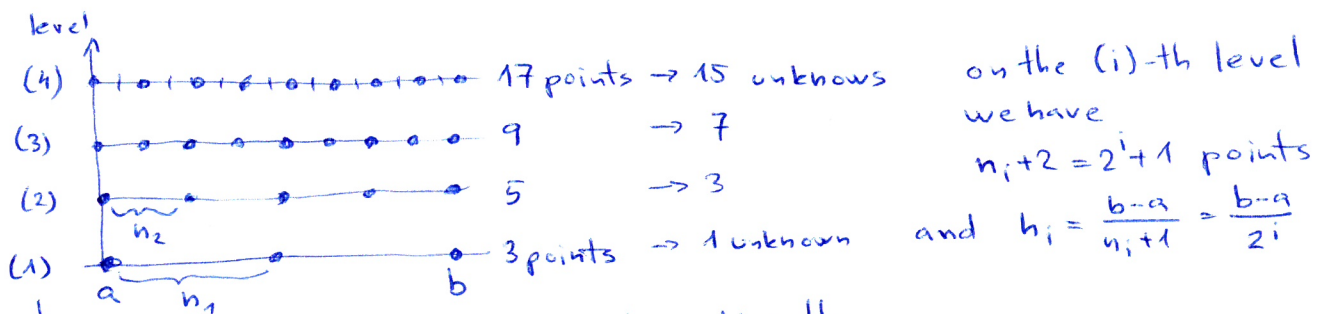 level
(4) 17 points → 15 unknows
(3) 9 → 7
(2) 5 → 3
h₂
(1) 3 points → 1 unknown
a h₁ b
on the (i)-th level
we have
nᵢ+2 = 2ⁱ+1 points
and hᵢ = (b-a)/(nᵢ+1) = (b-a)/2ⁱ